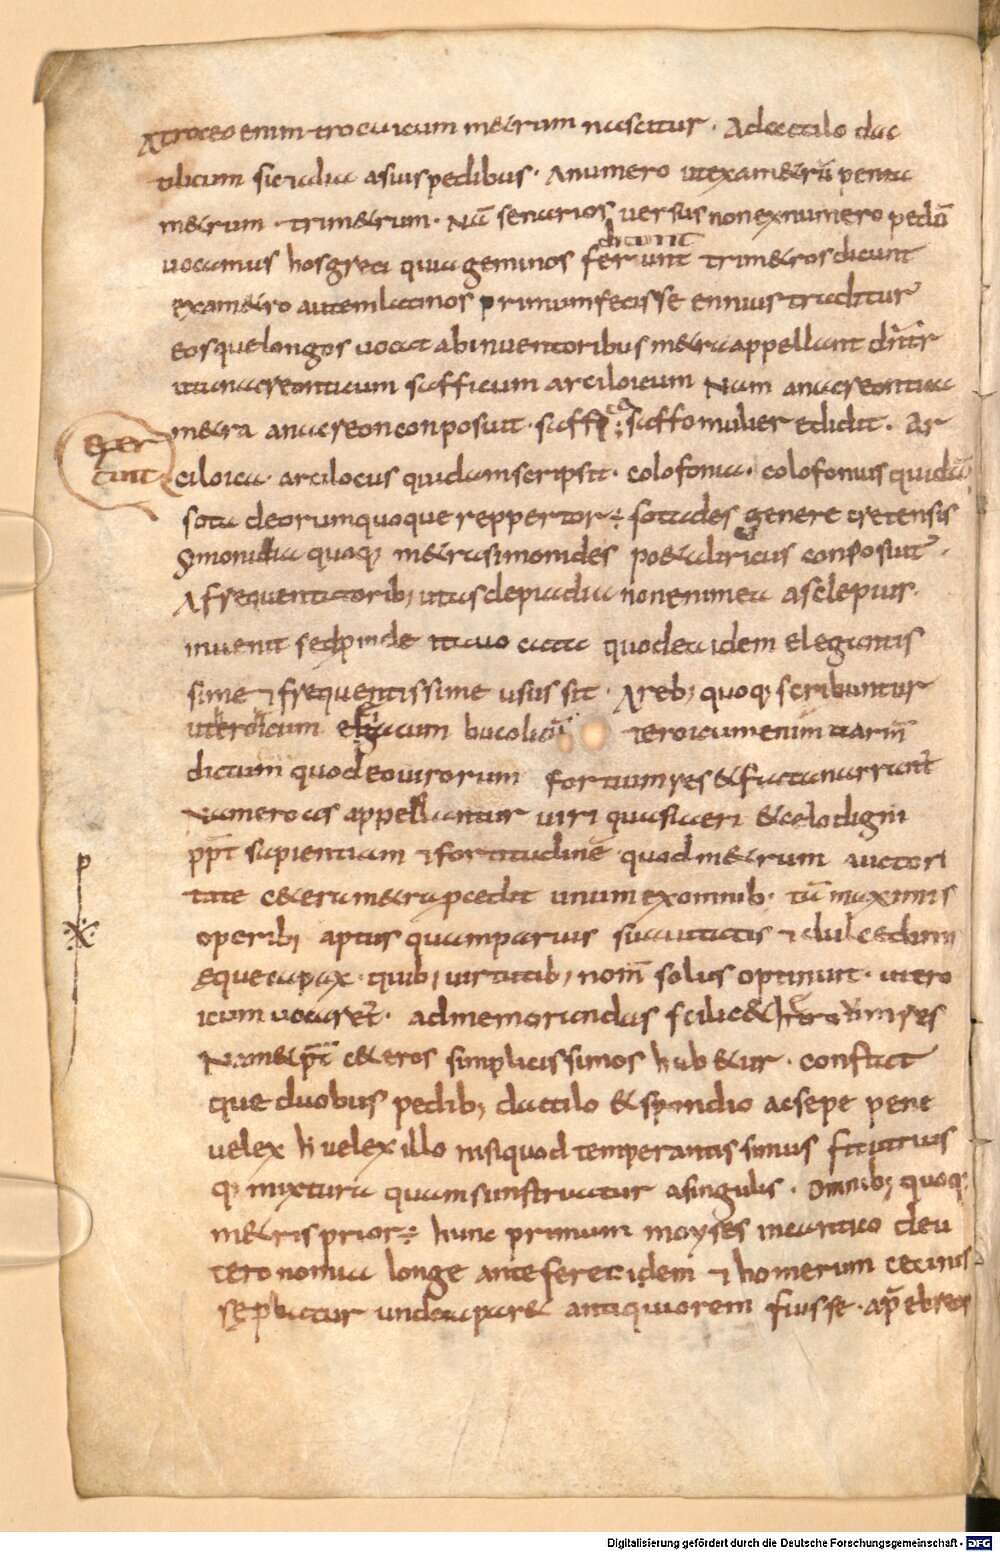 Atroceo enim trocaicum metrum nascitur · Adactilo dac
tilicum sic & alia asuis pedibus · Anumero ut exametrū penta
metrum · trimetrum · Nā senarios versus non ex numero pedū
vocamus hos greci quia geminos ferunt trimetros dicunt
exametro autem latinos primum fecisse ennius traditur
eosque longos vocat ab inventoribus metra appellant
ut anacreonticum safficum arciloicum Nam anacreontica
metra anacreon conposuit · saffica saffo mulier edidit · Ar
ciloica arcilocus quidam scripsit · colofonia · colofonius quidā
sotadeorum quoque reppertor ÷ sotades genere cretensis
Simonidia quoq; metra simonides poeta liricus conposuit ·
A frequentatorib; ut asclepiadia non enim ea asclepius
invenit sed proinde ita vocata quod ea idem elegantis
sime & frequentissime usus sit · A reb; quoq; scribuntur
ut eroicum elgiacum bucolicū Eroicum enim carm̄
dictum quod eo virorum fortium res & facta narrant
Nam eroas appellantur viri quasi aeri & celo digni
ppt sapientiam & fortitudinē quod metrum auctori
tate cetera metra pcedit unum ex omnib · tā maximis
operib; aptus quam parvis suavitatis & dulcedinis
eque capax · quib; virtutib; nom̄ solus optinuit · ut ero
icum vocaret · ad memorandas scilicet res
Nam et p̄t ceteros simplicissimos habetur · constat
que duobus pedib; dactilo & spondio ac sepe pene
vel ex h vel ex illo nisi quod temperantissimus fit utrius
q; mixtura quam si instruatur a singulis · Omnib; quoq;
metris prior ÷ hunc primum moyses in cantico deu
teronomia longe ante ferecidem & homerum cecinis
se pbatur unde apparet antiquiorem fuisse · ap̄ ebreos